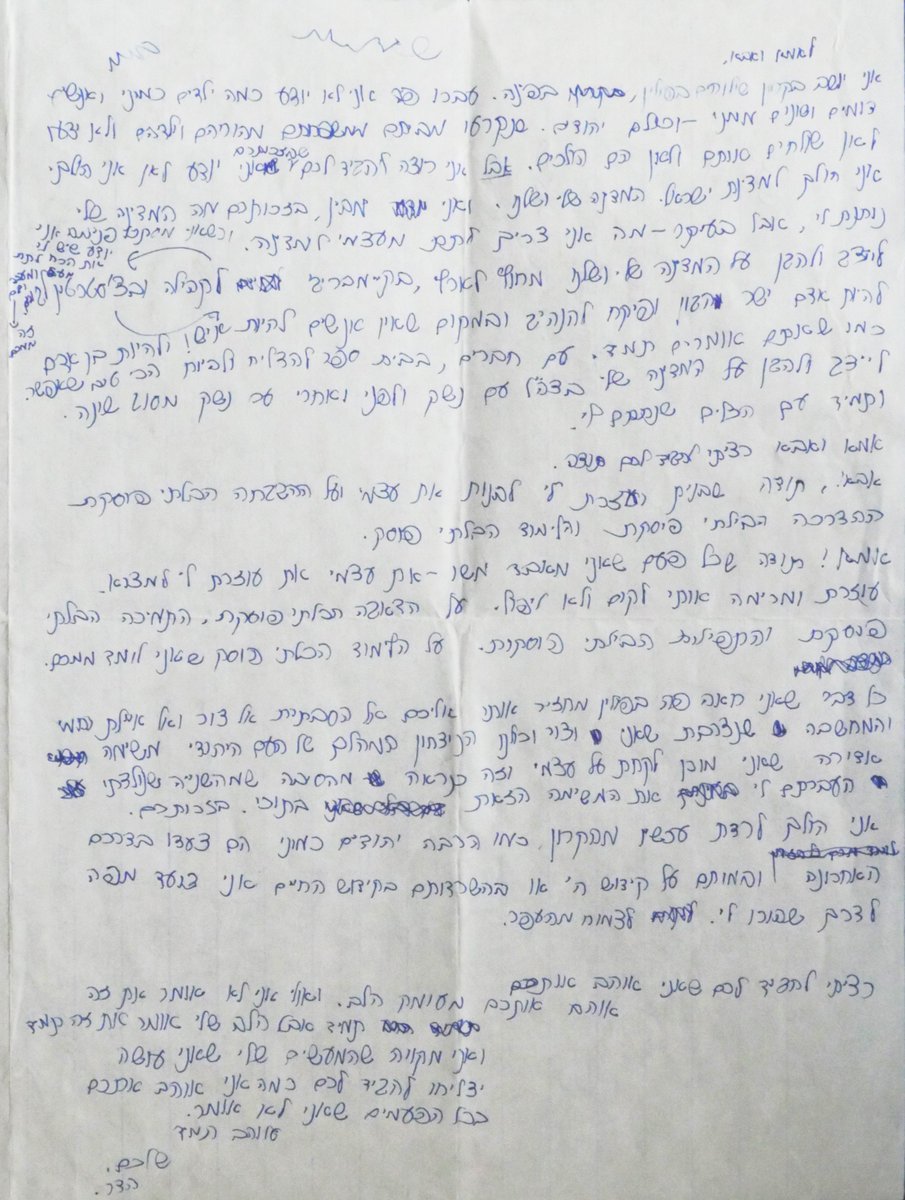 לאמא ואבא,
אני יושב בקרון שילוחים בפולין, בפינה. עברו פה אני לא יודע כמה ילדים כמוני ואנשים
דומים ושונים ממני - וכולם יהודים. שנקרעו מביתם ממשפחתם מהוריהם וילדהם ולא ידעו
לאן שולחים אותם ולאן הם הולכים. אבל אני רוצה להגיד לכם שבעזרתכם אני יודע לאן אני הולך
אני הולך למדינת ישראל. המדינה שלי ושלנו. ואני מבין, בזכותכם מה המדינה שלי
נותנת לי, אבל בעיקר - מה אני צריך לתת מעצמי למדינה. וכשאני מביט פנימה אני
יודע שיש לי
את הכח לתת
לייצג ולהגן על המדינה שלי ושלנו מחוץ לארץ, בקיימברידג' לקהילה ובצ'סטרטון
להיות אדם ישר הגון ופיקח להנהיג ובמקום שאין אנשים להיות איש! ולהיות בן אדם
כמו שאתם אומרים תמיד. עם חברים, בבית ספר להצליח ולהיות הכי טוב שאפשר.
לייצג ולהגן על המדינה שלי בצה"ל עם נשק ולפני ואחרי עם נשק מסוג שונה.
ותמיד עם הכלים שנתתם לי.
אמא ואבא רציתי להגיד לכם תודה.
אבא, תודה שבנית ועזרת לי לבנות את עצמי ועל ההשגחה הבלתי פוסקת
ההדרכה הבילתי פוסקת והלימוד הבלתי פוסק.
אמא! תודה שכל פעם שאני מאבד משהו - את עצמי את עוזרת לי למצוא.
עוזרת ומרימה אותי לקום ולא ליפול. על הדאגה הבלתי פוסקת, התמיכה הבלתי
פוסקת והתפילות הבילתי פוסקות. על הלימוד הבלתי פוסק שאני לומד ממכם.
כל דבר שאני רואה פה בפולין מחזיר אותי אליכם אל הסבתית אל צור ואל איילת וחמי
והמחשבה שנצרבת שאני וצור וכולנו הניצחון במהלכם של העם היהודי משימה
אדירה שאני מוכן לקחת על עצמי וזה כנראה מהסיבה שמהשנייה שנולדתי
העברתם לי את המשימה הזאת בתוכי. בזכותכם.
אני הולך לרדת עכשיו מהקרון, כמו הרבה יהודים כמוני הם צעדו בדרכם
האחרונה ובמותם על קידוש ה' או בהשרדותם בקידוש החיים אני צועד מפה
לדרך שפורו לי. לצמוח מהעפר.
רציתי להגיד לכם שאני אוהב אותכם
אוהב אותכם מעומק הלב. ואולי אני לא אומר את זה
תמיד אבל הלב שלי אומר את זה תמיד
ואני מקווה שהמעשים שלי שאני עושה
יצליחו להגיד לכם כמה אני אוהב אתכם
בכל הפעמים שאני לא אומר.
שלכם.
הדר.